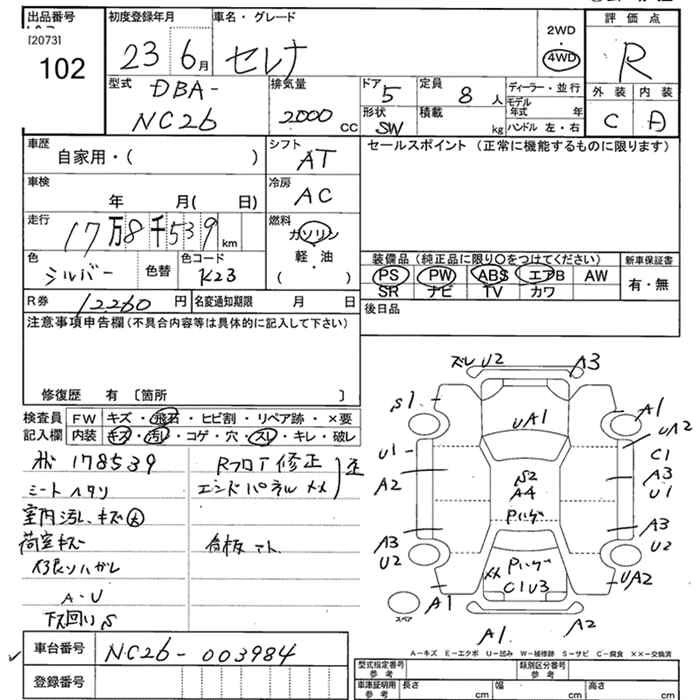 出品番号
[2073]
102
初度登録年月
23 6月
車名・グレード
セレナ
2WD
・
4WD
評価点
R
外装 内装
C D
型式
DBA-
NC26
排気量
2000 CC
ドア
5
形状
SW
定員
8 人
積載
kg
ディーラー・並行
モデル
年式 年
ハンドル 左・右
車歴
自家用・( )
シフト
AT
セールスポイント (正常に機能するものに限ります)
車検
年 月( 日)
冷房
AC
走行
17万8千539 km
燃料
ガソリン
軽・油
( )
色
シルバー
色替
色コード
K23
装備品 (純正品に限り○をつけてください)
PS PW ABS エアB AW
SR ナビ TV カワ
新車保証書
有・無
R券 12,260 円
名変通知期限 月 日
後日品
注意事項申告欄 (不具合内容等は具体的に記入して下さい)
修復歴 有 〔箇所 〕
検査員
記入欄
FW キズ・飛石・ヒビ割・リペア跡・×要
内装 キズ・汚レ・コゲ・穴・スレ・キレ・破レ
178539
シートヘタリ
室内汚レ、キズ大
荷室キズ
ハガレ
A・U
下回りS
RフロT修正
エンドパネルメメ
ズレU2
A3
S1
A1
UA1
UA2
U1
C1
A2
A3
U1
S2
A4
Pハゲ
A3
U2
A3
U2
Pハゲ
メメ
C1U3
UA2
A1
A1
A2
スペア
車台番号 NC26-003984
登録番号
A－キズ E－エクボ U－凹み W－補修跡 S－サビ C－腐食 ××－交換済
型式指定番号
参考
類別区分番号
参考
車庫証明用
参考
長さ cm
幅 cm
高さ cm